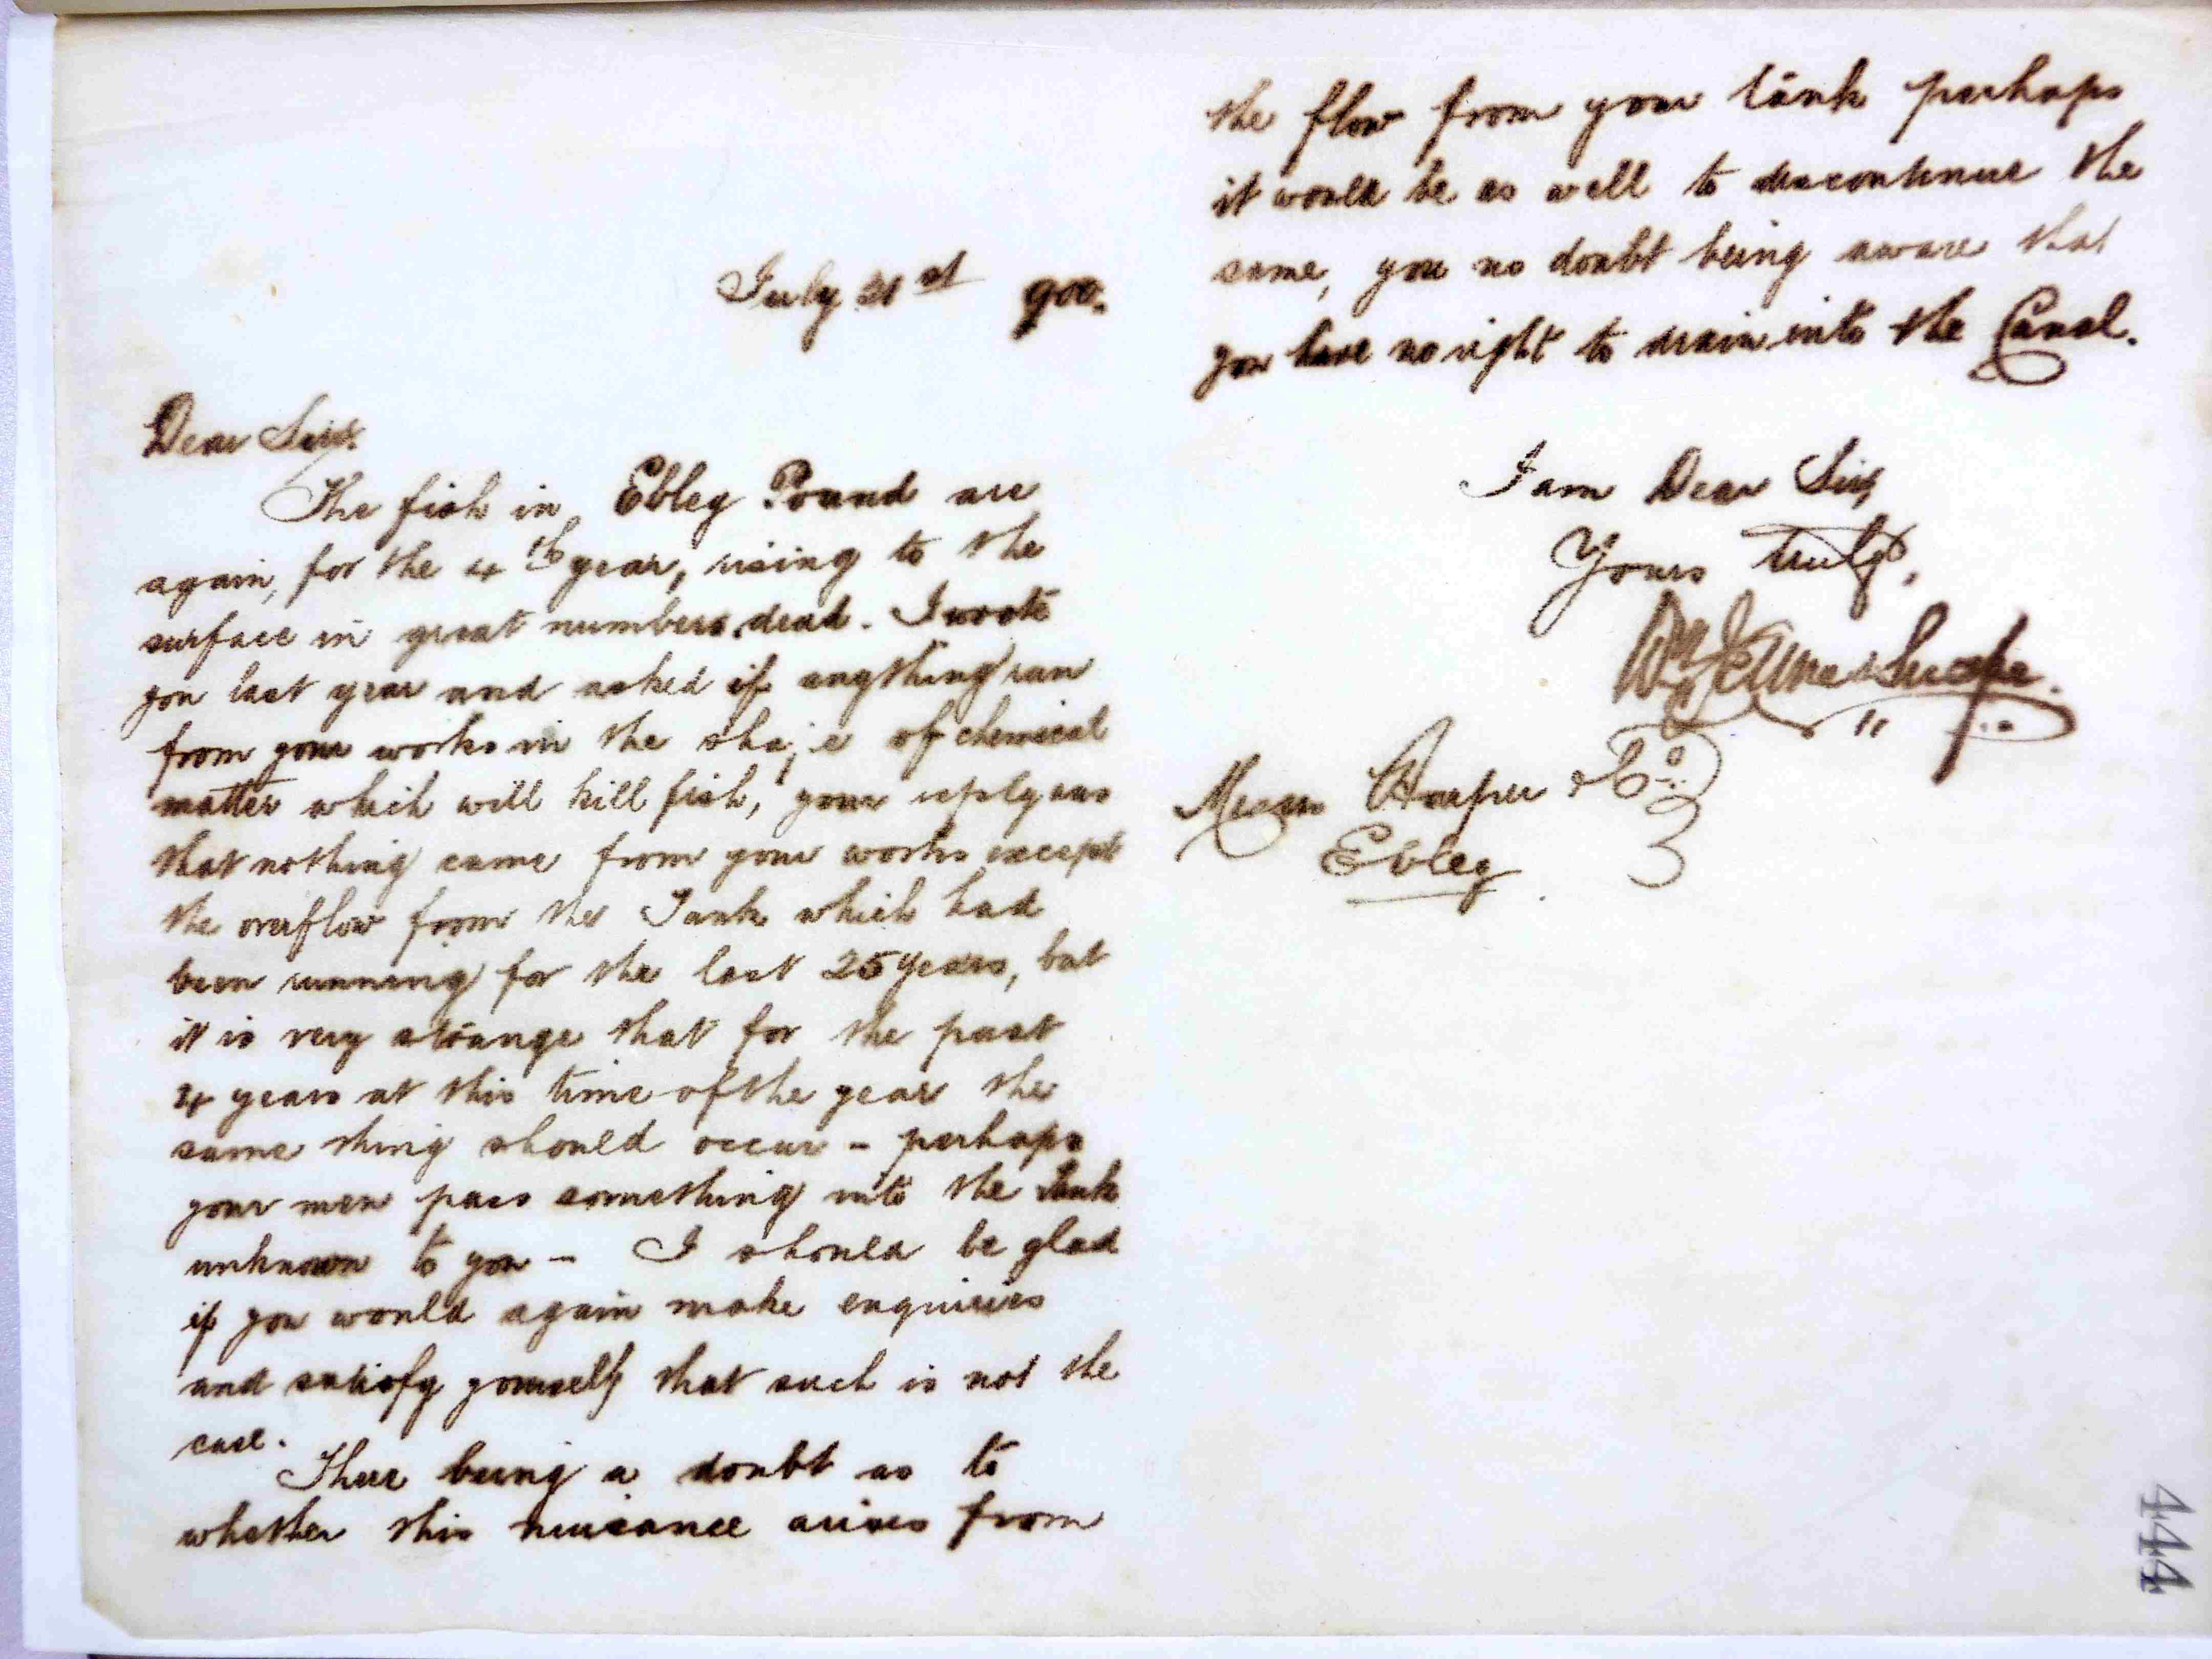 July 21st 900.
Dear Sirs.
The fish in Ebley Pound are
again, for the 4th year, rising to the
surface in great numbers, dead. I wrote
you last year and asked if anything ran
from your works in the shape of chemical
matter which will kill fish, your reply was
that nothing came from your works except
the overflow from the Tank which had
been running for the last 25 years, but
it is very strange that for the past
4 years at this time of the year the
same thing should occur - perhaps
your men pass something into the Tank
unknown to you - I should be glad
if you would again make enquiries
and satisfy yourself that such is not the
case.
There being a doubt as to
whether this nuisance arises from
the flow from your tank perhaps
it would be as well to discontinue the
same, you no doubt being aware that
you have no right to drain into the Canal.
I am Dear Sirs,
Yours truly,
Messrs Harper & Co
Ebley
444